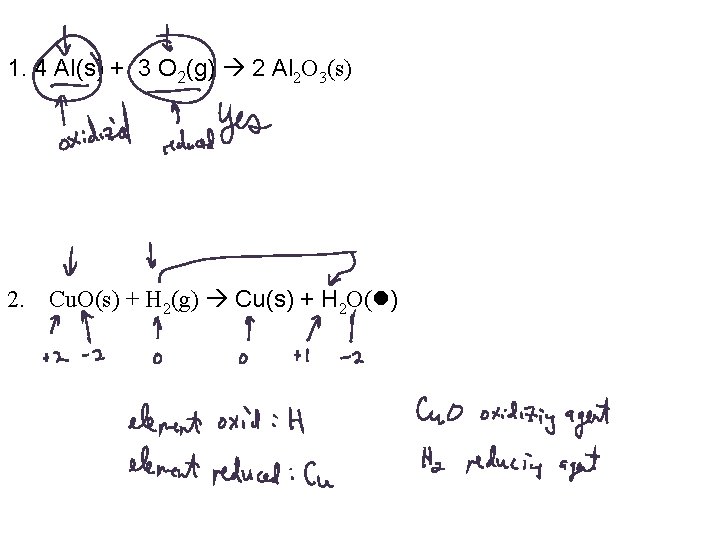 1. 4 Al(s) + 3 O2(g) → 2 Al2O3(s)
oxidizid reduced Yes
2. CuO(s) + H2(g) → Cu(s) + H2O(●)
+2 -2 0 0 +1 -2
element oxid : H
element reduced : Cu
CuO oxidiziy agent
H2 reduciy agent